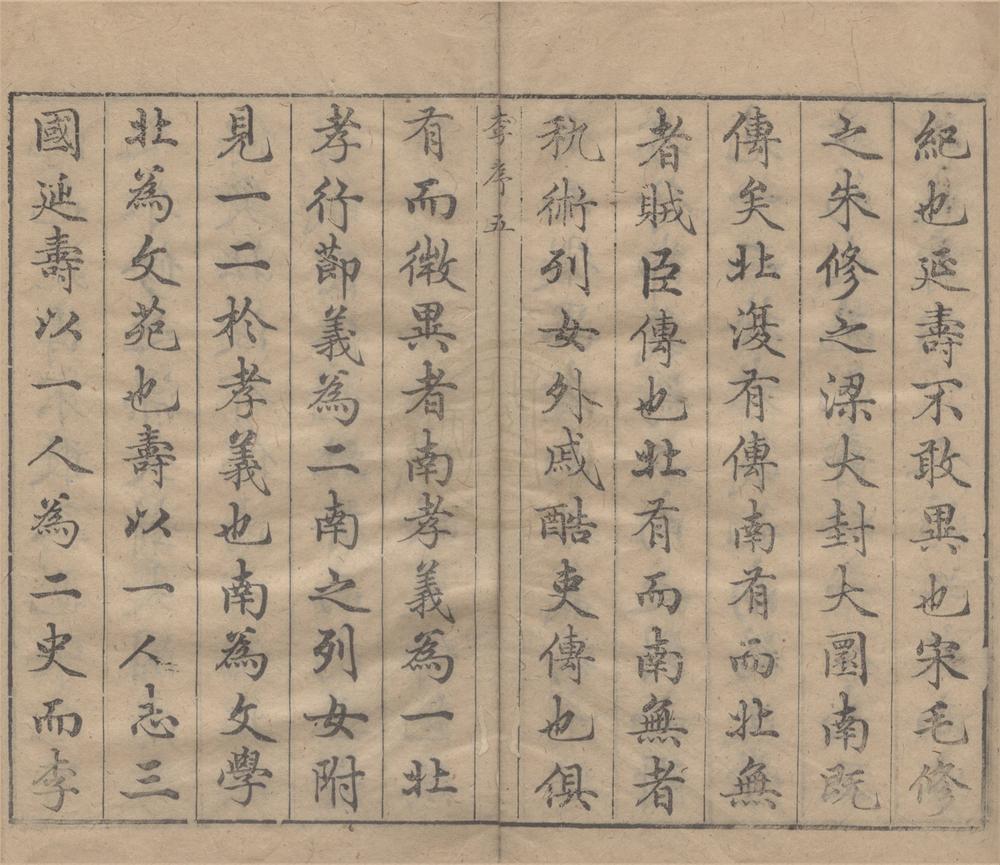 紀也延壽不敢異也宋毛修
之朱修之梁大封大圜南既
傳矣北復有傳南有而北無
者賊臣傳也北有而南無者
秇術列女外戚酷吏傳也俱
李序五
有而微異者南孝義為一北
孝行節義為二南之列女附
見一二於孝義也南為文學
北為文苑也壽以一人志三
國延壽以一人為二史而李